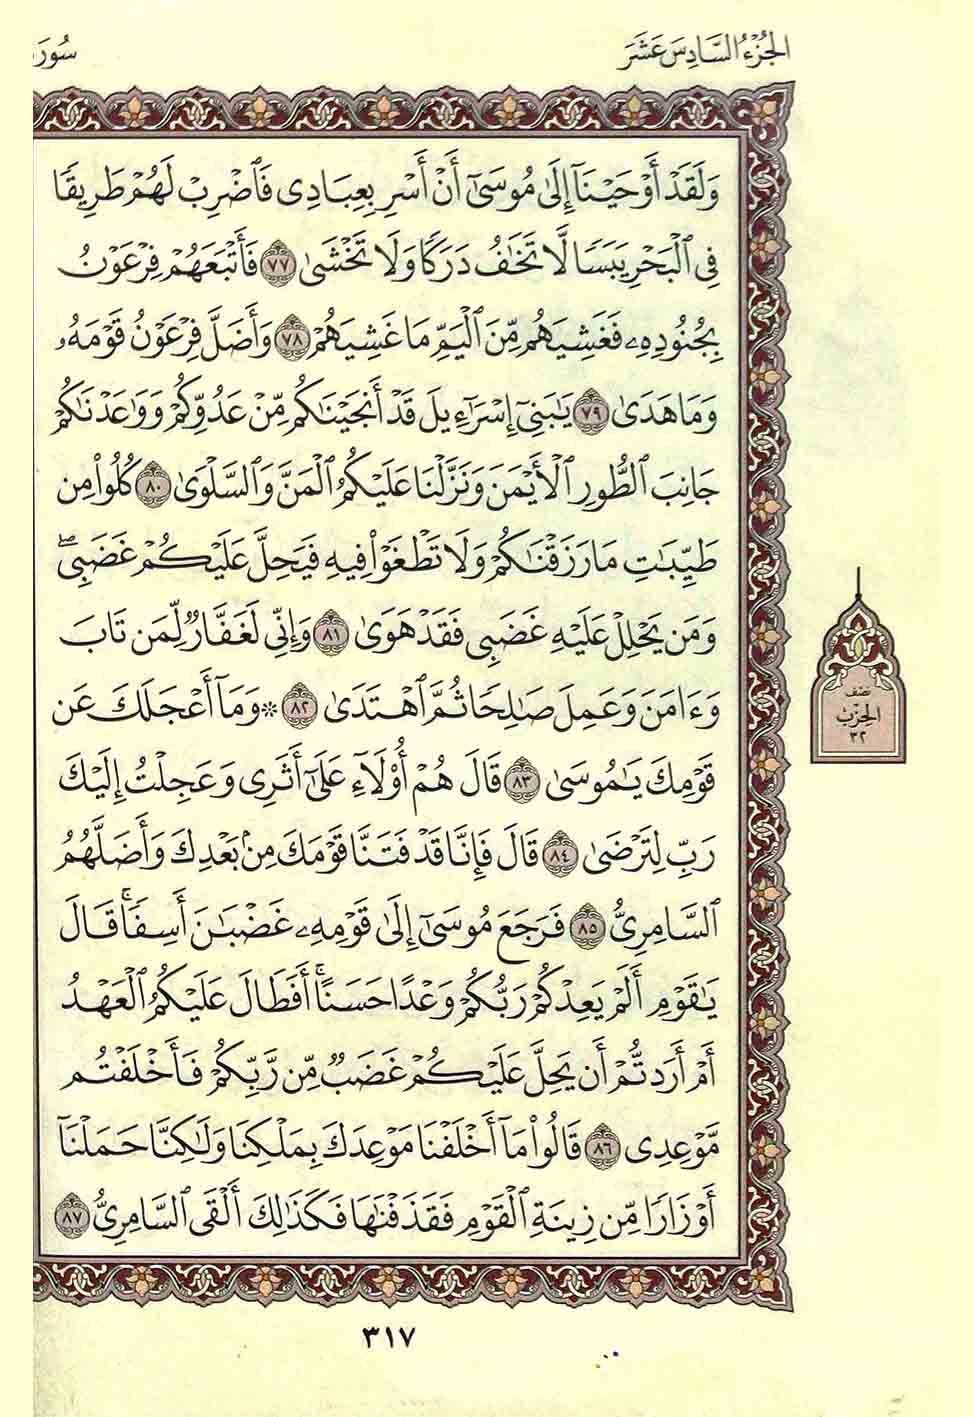 الجُزْءُ السَّادِسَ عَشَرَ
سُورَ
وَلَقَدْ أَوْحَيْنَآ إِلَىٰ مُوسَىٰٓ أَنْ أَسْرِ بِعِبَادِى فَٱضْرِبْ لَهُمْ طَرِيقًا
فِى ٱلْبَحْرِ يَبَسًا لَّا تَخَٰفُ دَرَكًا وَلَا تَخْشَىٰ ٧٧ فَأَتْبَعَهُمْ فِرْعَوْنُ
بِجُنُودِهِۦ فَغَشِيَهُم مِّنَ ٱلْيَمِّ مَا غَشِيَهُمْ ٧٨ وَأَضَلَّ فِرْعَوْنُ قَوْمَهُۥ
وَمَا هَدَىٰ ٧٩ يَٰبَنِىٓ إِسْرَٰٓءِيلَ قَدْ أَنجَيْنَٰكُم مِّنْ عَدُوِّكُمْ وَوَٰعَدْنَٰكُمْ
جَانِبَ ٱلطُّورِ ٱلْأَيْمَنَ وَنَزَّلْنَا عَلَيْكُمُ ٱلْمَنَّ وَٱلسَّلْوَىٰ ٨٠ كُلُوا۟ مِن
طَيِّبَٰتِ مَا رَزَقْنَٰكُمْ وَلَا تَطْغَوْا۟ فِيهِ فَيَحِلَّ عَلَيْكُمْ غَضَبِى ۖ
وَمَن يَحْلِلْ عَلَيْهِ غَضَبِى فَقَدْ هَوَىٰ ٨١ وَإِنِّى لَغَفَّارٌ لِّمَن تَابَ
وَءَامَنَ وَعَمِلَ صَٰلِحًا ثُمَّ ٱهْتَدَىٰ ٨٢ ۞ وَمَآ أَعْجَلَكَ عَن
قَوْمِكَ يَٰمُوسَىٰ ٨٣ قَالَ هُمْ أُو۟لَآءِ عَلَىٰٓ أَثَرِى وَعَجِلْتُ إِلَيْكَ
رَبِّ لِتَرْضَىٰ ٨٤ قَالَ فَإِنَّا قَدْ فَتَنَّا قَوْمَكَ مِنۢ بَعْدِكَ وَأَضَلَّهُمُ
ٱلسَّامِرِىُّ ٨٥ فَرَجَعَ مُوسَىٰٓ إِلَىٰ قَوْمِهِۦ غَضْبَٰنَ أَسِفًا ۚ قَالَ
يَٰقَوْمِ أَلَمْ يَعِدْكُمْ رَبُّكُمْ وَعْدًا حَسَنًا ۚ أَفَطَالَ عَلَيْكُمُ ٱلْعَهْدُ
أَمْ أَرَدتُّمْ أَن يَحِلَّ عَلَيْكُمْ غَضَبٌ مِّن رَّبِّكُمْ فَأَخْلَفْتُم
مَّوْعِدِى ٨٦ قَالُوا۟ مَآ أَخْلَفْنَا مَوْعِدَكَ بِمَلْكِنَا وَلَٰكِنَّا حُمِّلْنَآ
أَوْزَارًا مِّن زِينَةِ ٱلْقَوْمِ فَقَذَفْنَٰهَا فَكَذَٰلِكَ أَلْقَى ٱلسَّامِرِىُّ ٨٧
نصف
الحزب
٣٢
٣١٧